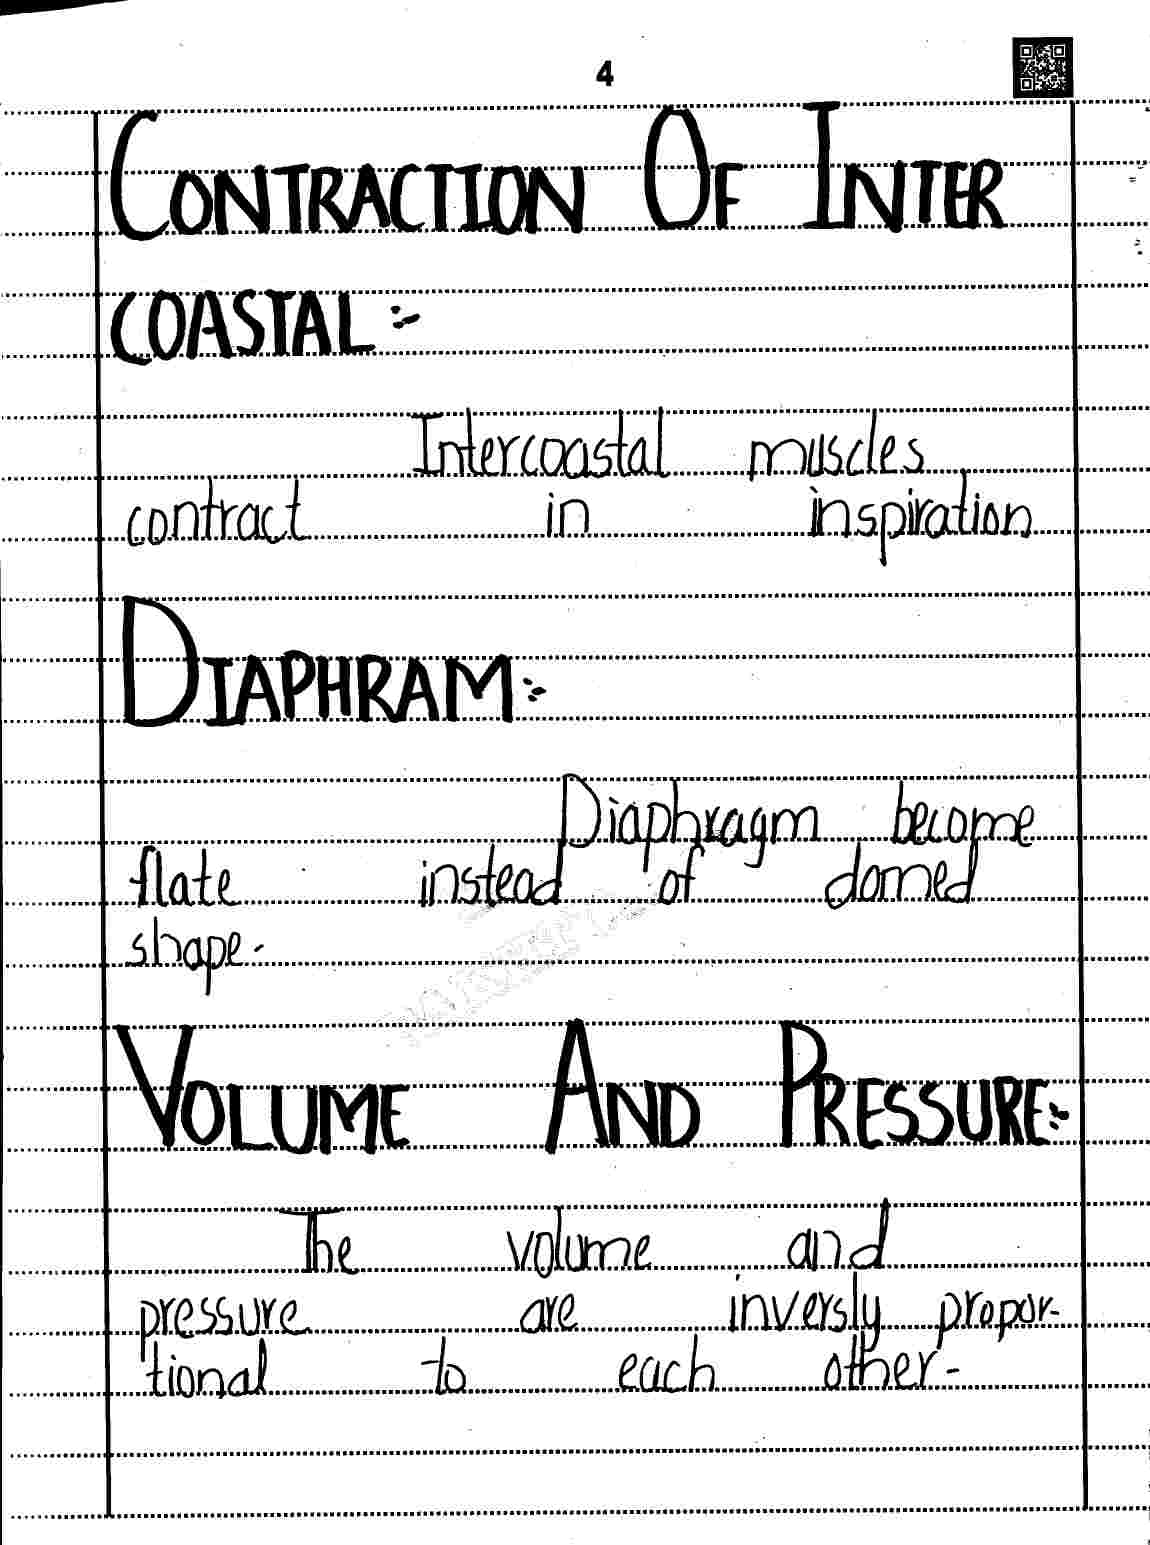 4
CONTRACTION OF INTER
COASTAL:-
Intercoastal muscles
contract in inspiration
DIAPHRAM:-
Diaphragm become
flate instead of domed
shape.
VOLUME AND PRESSURE:-
The volume and
pressure are inversly propor-
tional to each other-